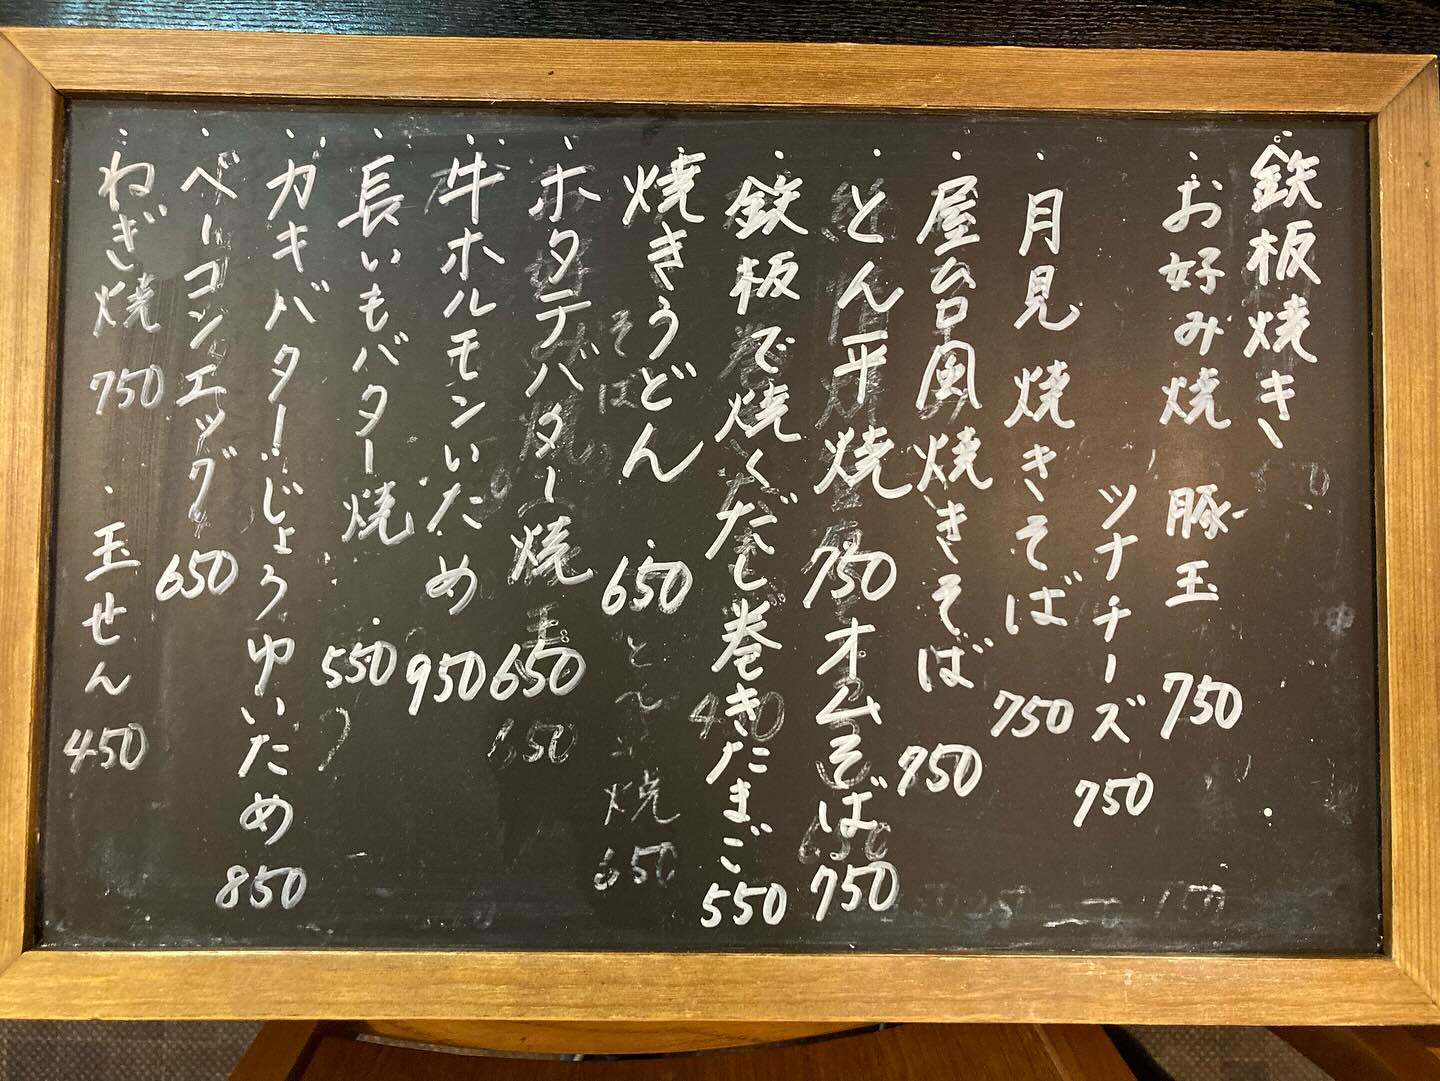 鉄板焼き
お好み焼 豚玉 750
ツナチーズ 750
月見焼きそば 750
屋台風焼きそば 750
とん平焼 750
オムそば 750
鉄板で焼くだし巻きたまご 550
焼きうどん 650
ホタテバター焼 650
牛ホルモンいため 950
長いもバター焼 550
カキバターじょうゆいため 850
ベーコンエッグ 650
ねぎ焼 750
玉せん 450